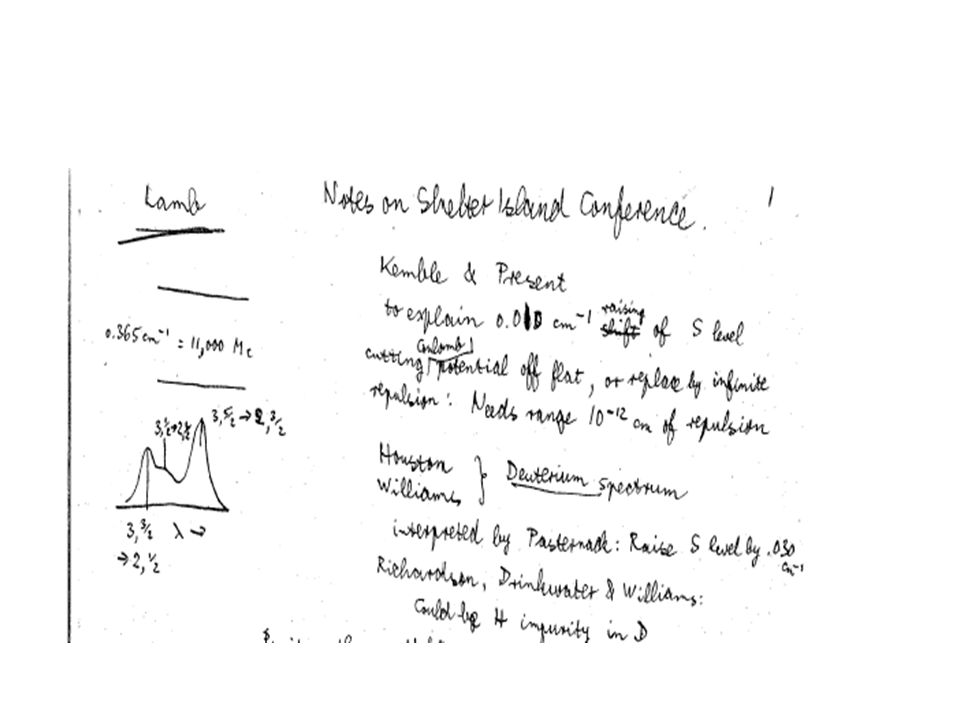 Lamb
Notes on Shelter Island Conference.
1
Kemble & Present
to explain 0.010 cm⁻¹ raising shift of S level
cutting Coulomb potential off flat, or replace by infinite
repulsion: Needs range 10⁻¹² cm of repulsion
0.365 cm⁻¹ = 11,000 Mc
3, ½→2, ½
3, 5/2→2, 3/2
3, 3/2
→2, ½
λ→
Houston
Williams } Deuterium spectrum
interpreted by Pasternack: Raise S level by .030 cm⁻¹
Richardson, Drinkwater & Williams:
Could be H impurity in D